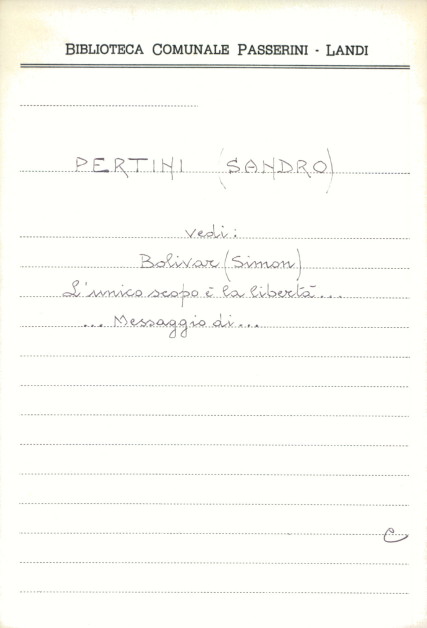 BIBLIOTECA COMUNALE PASSERINI - LANDI
PERTINI (SANDRO)
vedi:
Bolivar (Simon)
L'unico scopo è la libertà...
... Messaggio di...
C